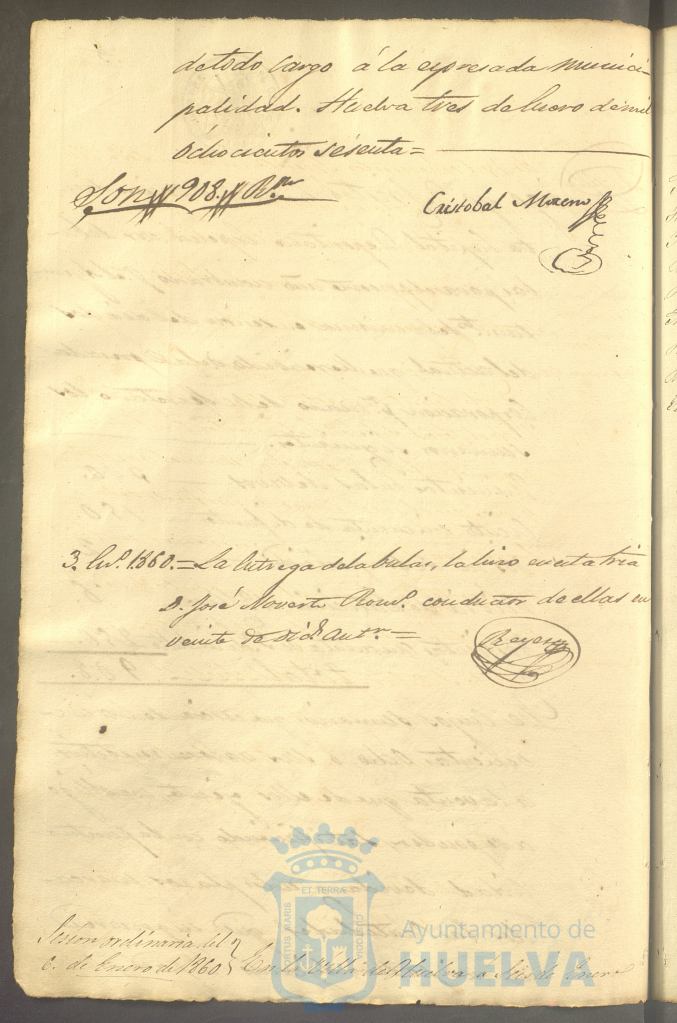 de todo cargo á la espresada munici-
palidad. Huelva tres de Enero de mil
Ochocientos sesenta =
Son 903. Rs.
Cristobal Moreno
3. En.º 1860. = La Entrega de la bulas, la hizo en esta
D. José conductor de ellas en
veinte de Antr. =
Reyes
Sesion ordinaria del
6. de Enero de 1860 En la Villa de Huelva a Seis de Enero
ET TERRÆ
PORTUS MARIS
CUSTODIO
Ayuntamiento de
HUELVA